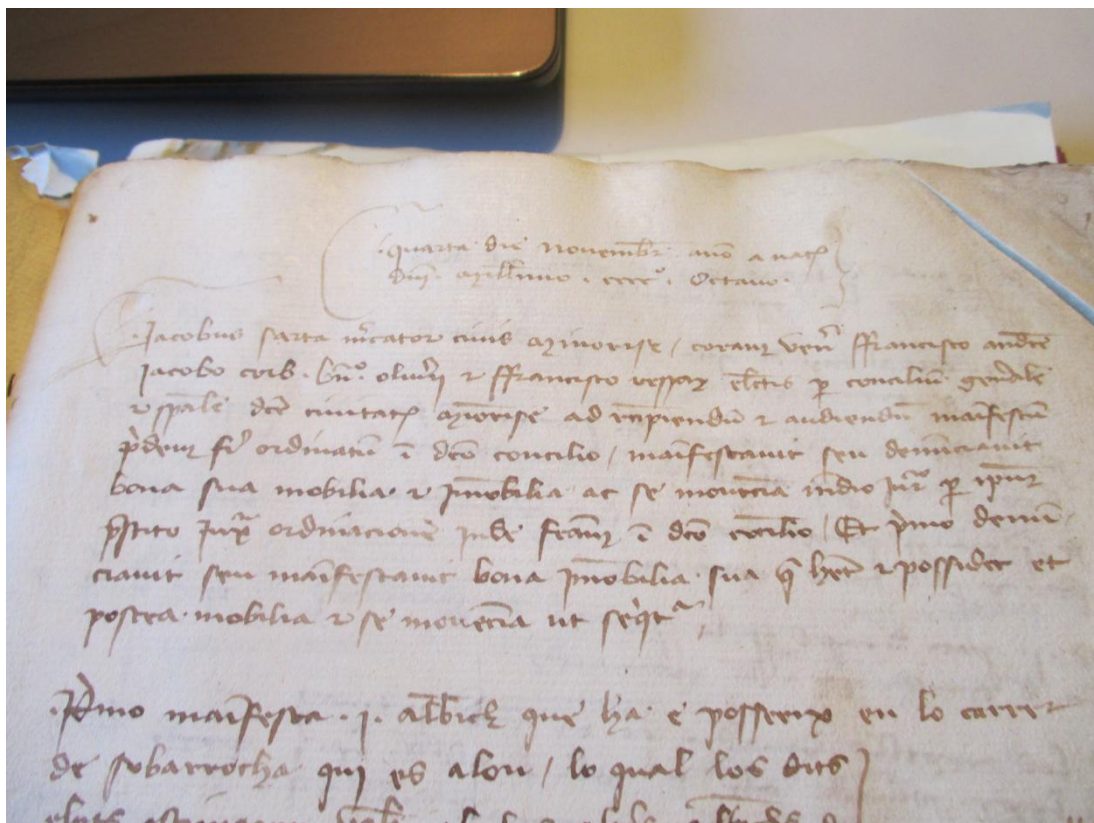 quarta die Novembr anno a nati
dni millimo cccc° Octavo
Jacobus sarta mcator civis minorise / coram ven ffrancisco andree
Jacobo corb. bn° oliverii & ffrancisco vessar elctis p concilium genrale
& spale dce civitatis minorise ad recipiendu & audiendu manifestu
pdem fi ordinatu i dco concilio / manifestavit seu denunciavit
bona sua mobilia & imobilia ac se movecia medio jur p ipm
pstito juxa ordinacione inde fcam i dco cocilio / Et pmo denun
ciavit seu manifestavit bona imobilia sua q het & possidet et
postea mobilia & se movecia ut seqt
Pmo manifesta . j. alberch que ha e posseex en lo carrer
de sobarrocha qui es alou / lo qual los dits